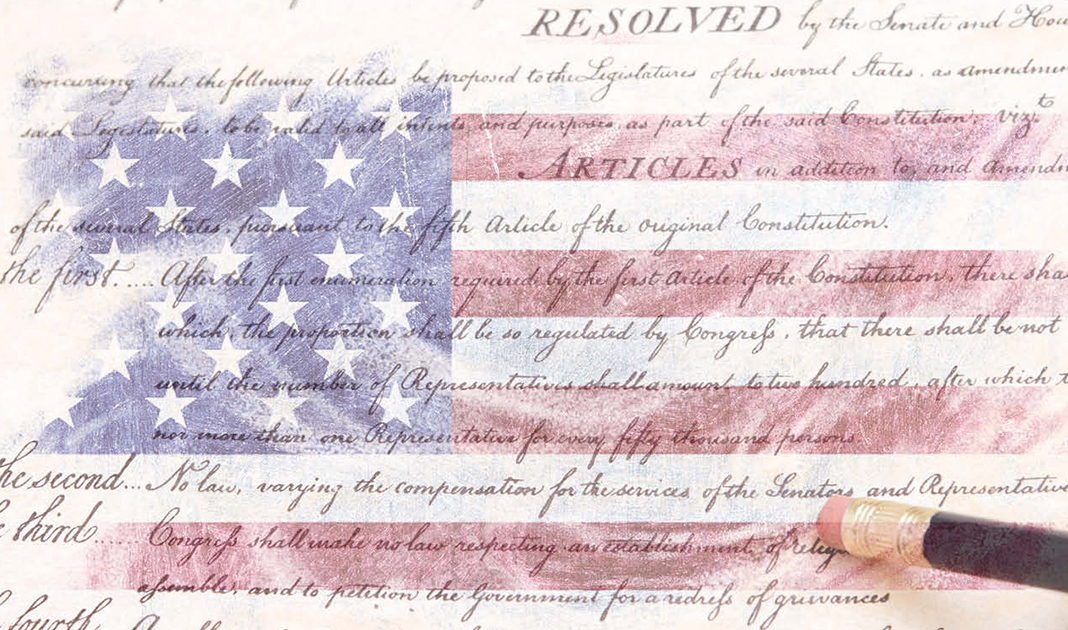 RESOLVED by the Senate and Hou
concurring that the following Articles be proposed to the Legislatures of the several States, as amendmen
said Legislatures, to be valid to all intents and purposes, as part of the said Constitution; vizt
ARTICLES in addition to, and Amendm
of the several States, pursuant to the fifth Article of the original Constitution.
the first..... After the first enumeration required by the first Article of the Constitution, there sha
which, the proportion shall be so regulated by Congreſs, that there shall be not
until the number of Representatives shall amount to two hundred, after which t
nor more than one Representative for every fifty thousand persons.
he second... No law, varying the compensation for the services of the Senators and Representative
e third...... Congreſs shall make no law respecting an establishment of religi
aſsemble, and to petition the Government for a redreſs of grievances
fourth